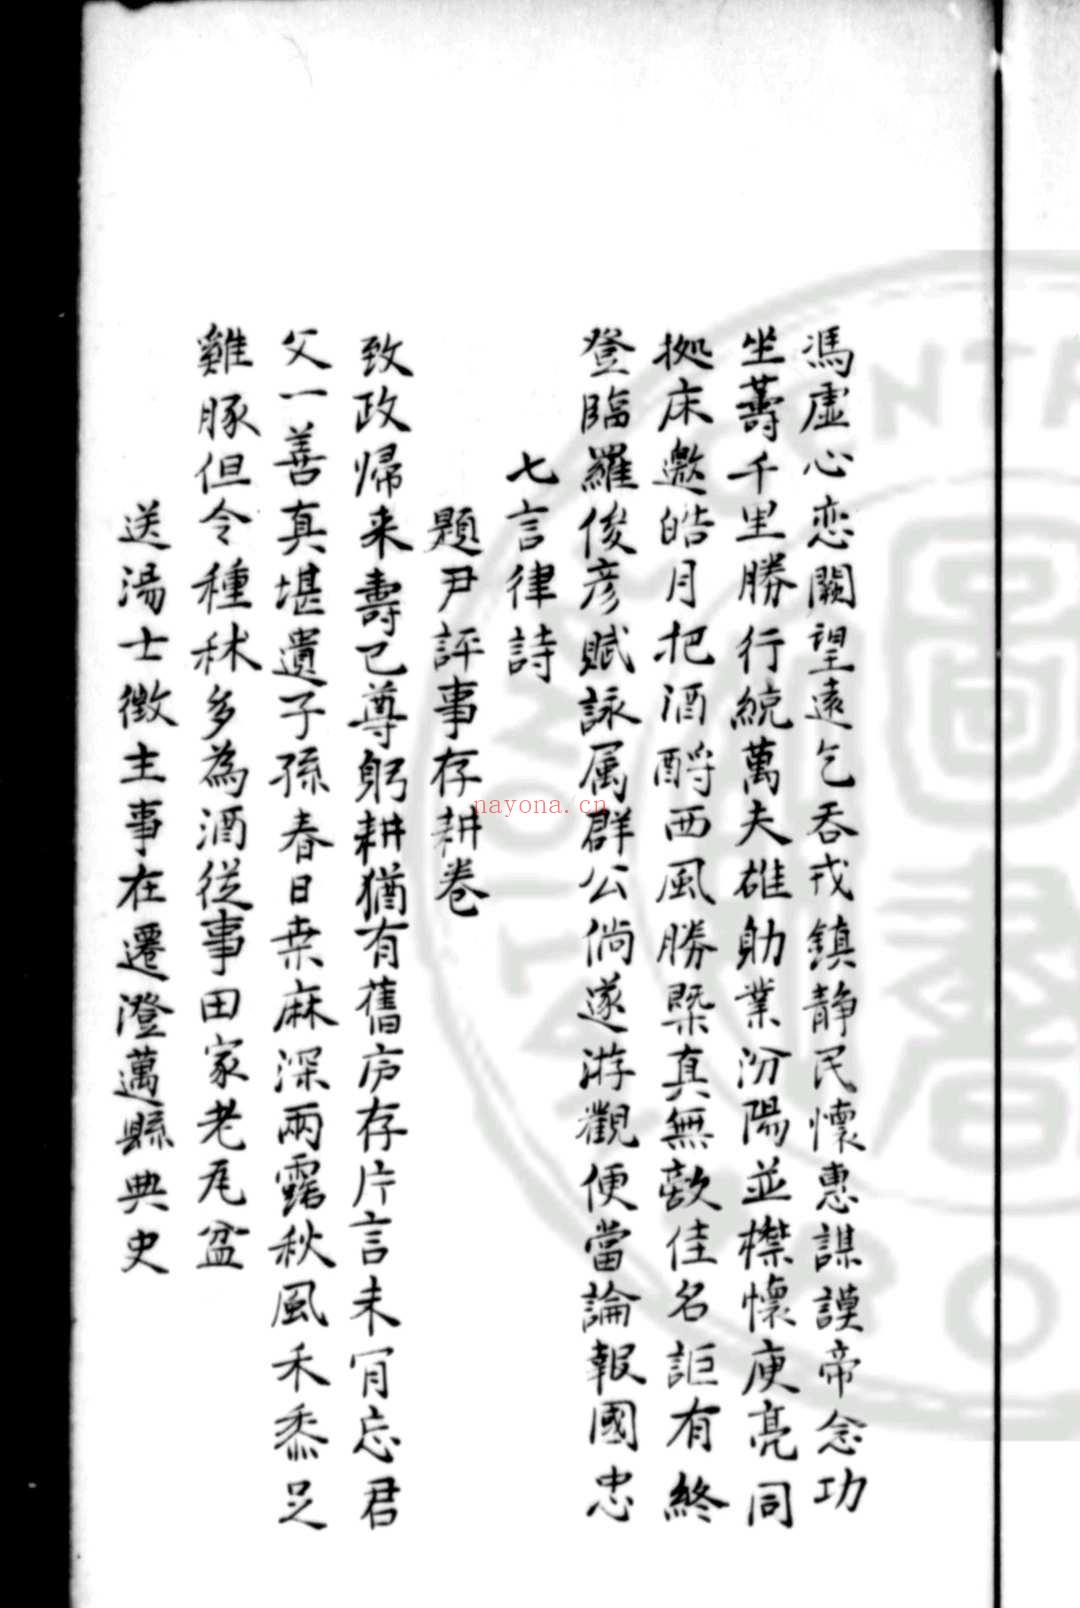 馮虛心恋闕望遠乞吞戎鎮静民懷惠謀謨帝念功
坐籌千里勝行統萬夫雄勛業汾陽並襟懷庾亮同
拠床邀皓月把酒酹西風勝槩真無敵佳名詎有終
登臨羅俊彦賦詠属群公倘遂游觀便當論報國忠
七言律詩
題尹評事存耕卷
致政帰来壽已尊躬耕猶有舊庐存片言未肎忘君
父一善真堪遺子孫春日桒麻深雨露秋風禾黍足
雞豚但令種秫多為酒従事田家老瓦盆
送湯士徵主事在遷澄邁縣典史
nayona.cn